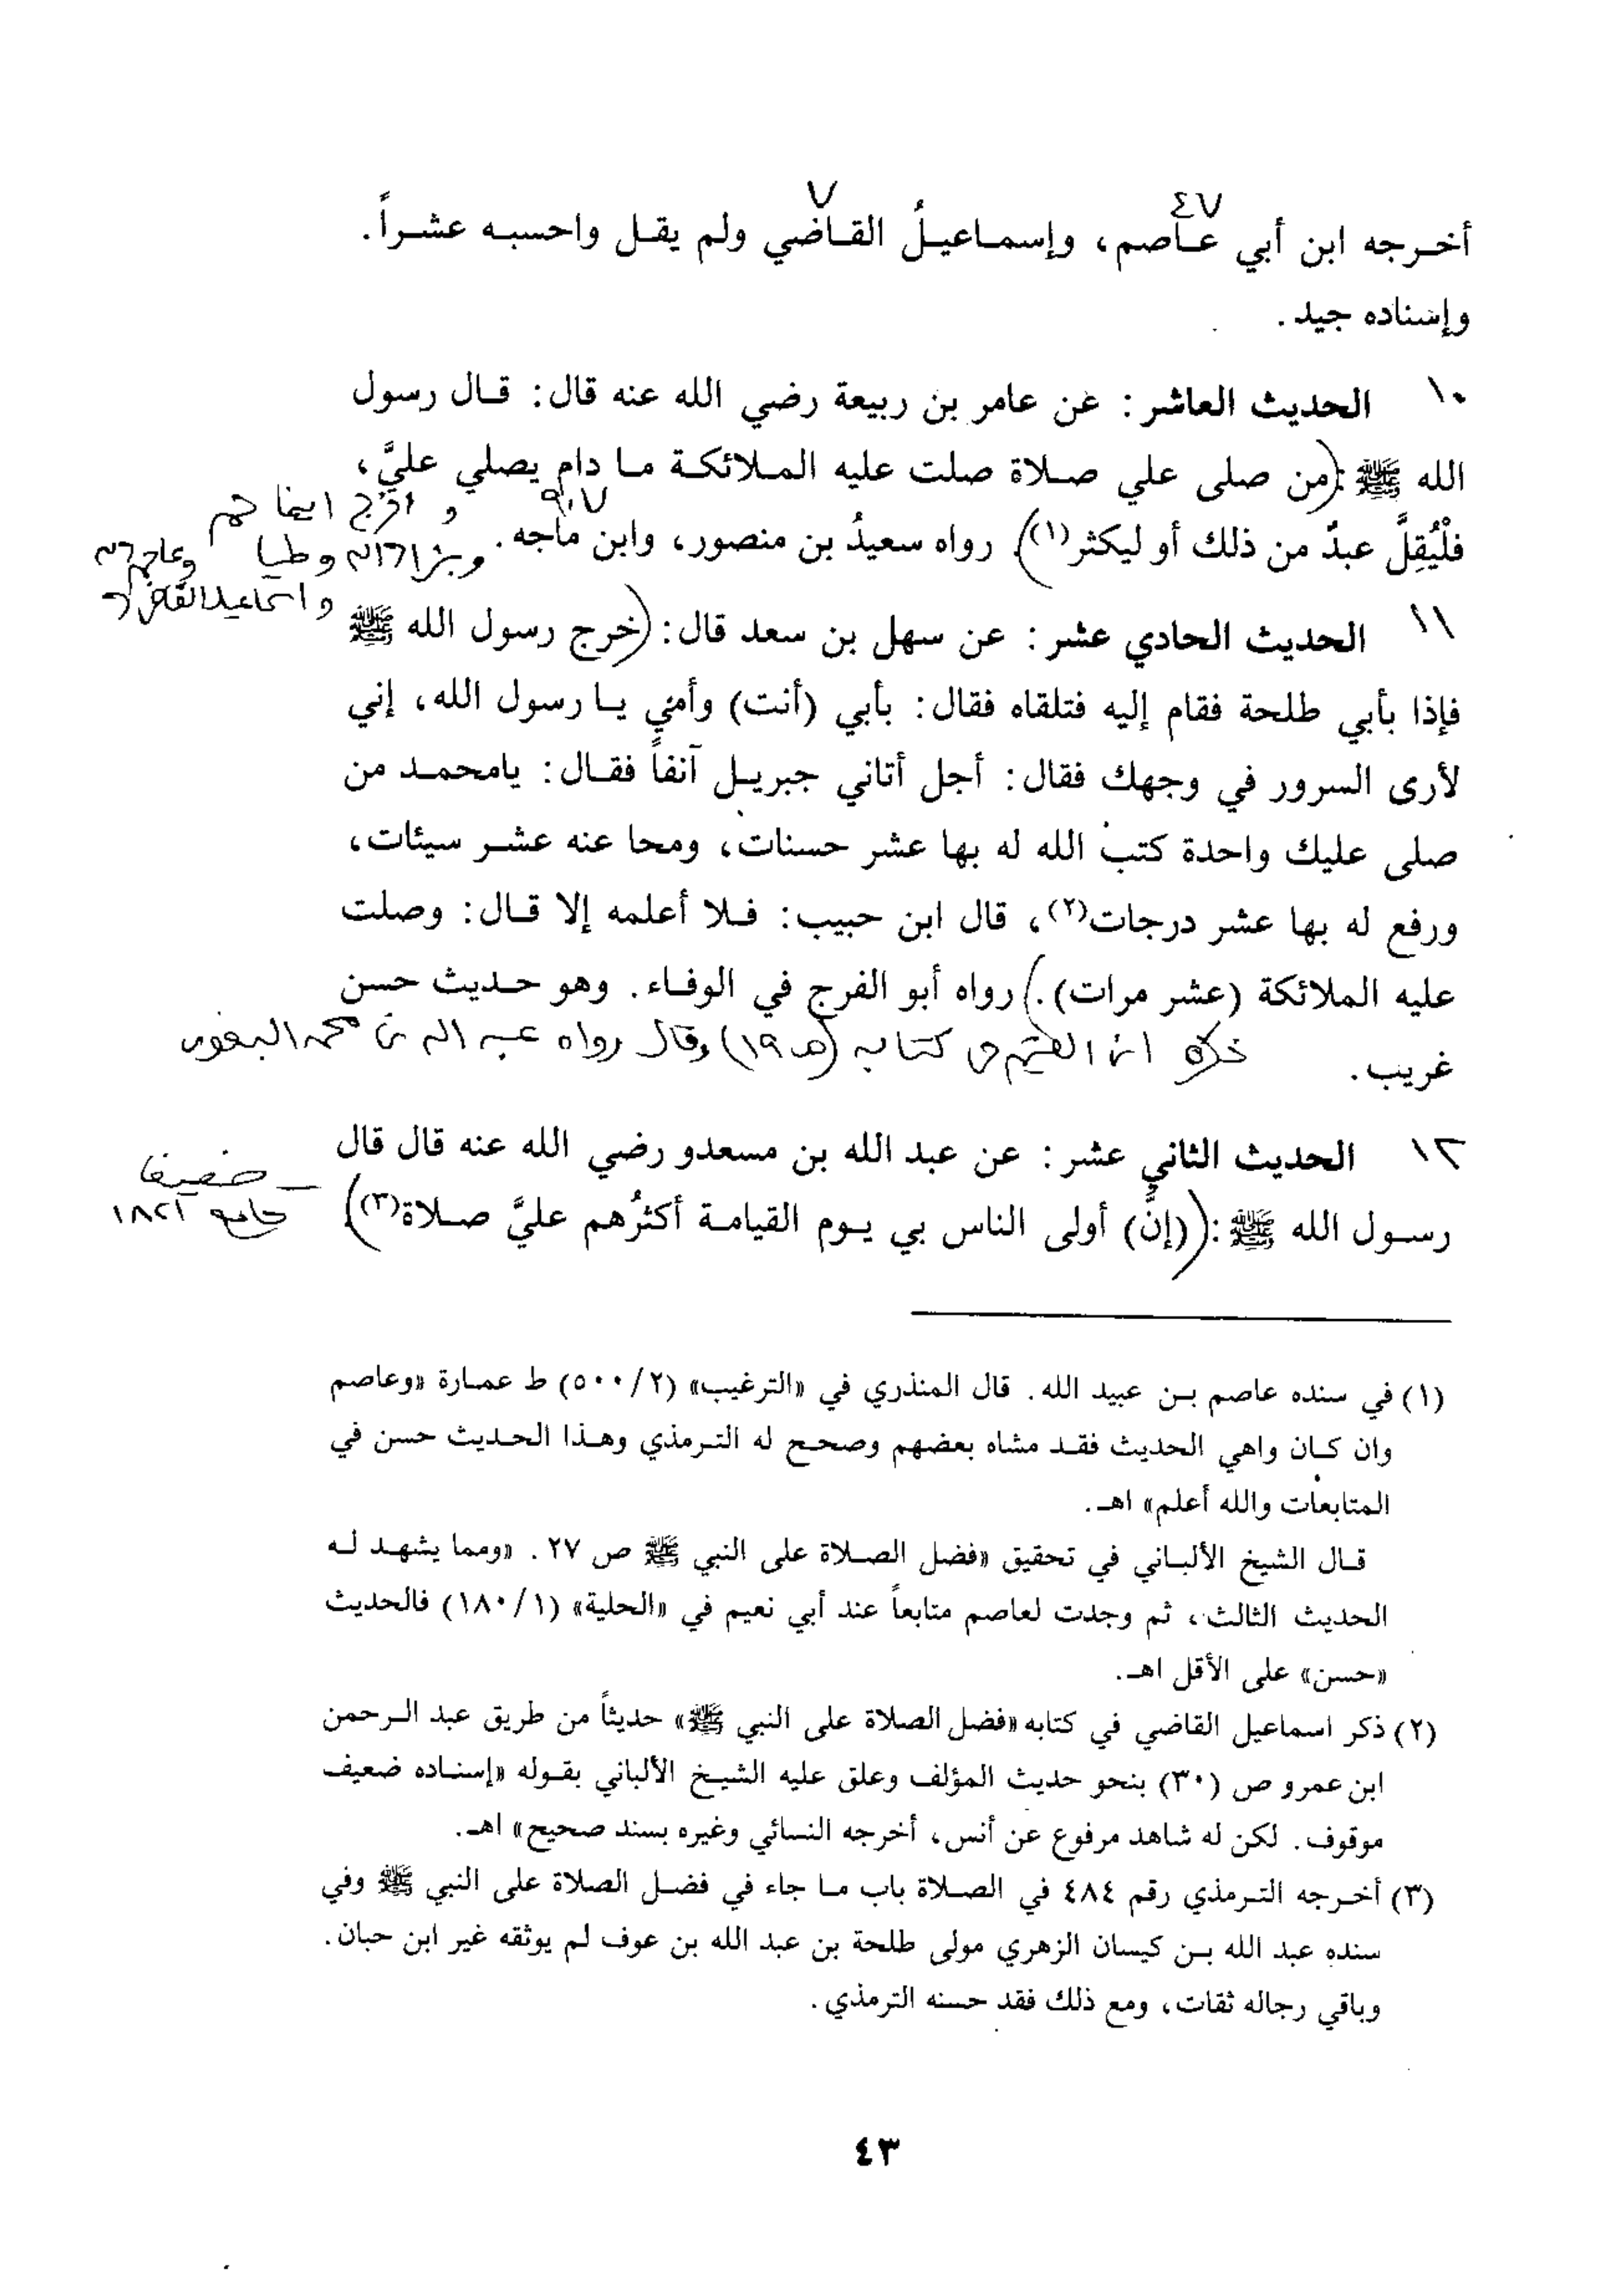 ٤٧ ٧
أخرجه ابن أبي عاصم، وإسماعيلُ القاضي ولم يقل واحسبه عشراً.
وإسناده جيد.
١٠ الحديث العاشر: عن عامر بن ربيعة رضي الله عنه قال: قال رسول
الله ﷺ: (من صلى علي صلاة صلت عليه الملائكة ما دام يصلي عليَّ،
فلْيُقِلَّ عبدٌ من ذلك أو ليكثر(١)). رواه سعيدُ بن منصور، وابن ماجه.
٩٠٧
١١ الحديث الحادي عشر: عن سهل بن سعد قال: (خرج رسول الله ﷺ
فإذا بأبي طلحة فقام إليه فتلقاه فقال: بأبي (أنت) وأمي يا رسول الله، إني
لأرى السرور في وجهك فقال: أجل أتاني جبريل آنفاً فقال: يامحمد من
صلى عليك واحدة كتب الله له بها عشر حسنات، ومحا عنه عشر سيئات،
ورفع له بها عشر درجات(٢)، قال ابن حبيب: فلا أعلمه إلا قال: وصلت
عليه الملائكة (عشر مرات).) رواه أبو الفرج في الوفاء. وهو حديث حسن
غريب.
ذكره ابن القيم في كتابه (ص ١٩) وقال رواه عبد الله بن محمد البغوي
١٢ الحديث الثاني عشر: عن عبد الله بن مسعدو رضي الله عنه قال قال
رسول الله ﷺ: ((إنَّ) أولى الناس بي يوم القيامة أكثرُهم عليَّ صلاة(٣))
– ضعيف
جامع ١٨٢١
(١) في سنده عاصم بن عبيد الله. قال المنذري في «الترغيب» (٢/٥٠٠) ط عمارة «وعاصم
وان كان واهي الحديث فقد مشاه بعضهم وصحح له الترمذي وهذا الحديث حسن في
المتابعات والله أعلم» اهـ.
قال الشيخ الألباني في تحقيق «فضل الصلاة على النبي ﷺ ص ٢٧. «ومما يشهد له
الحديث الثالث، ثم وجدت لعاصم متابعاً عند أبي نعيم في «الحلية» (١/١٨٠) فالحديث
«حسن» على الأقل اهـ.
(٢) ذكر اسماعيل القاضي في كتابه «فضل الصلاة على النبي ﷺ» حديثاً من طريق عبد الرحمن
ابن عمرو ص (٣٠) بنحو حديث المؤلف وعلق عليه الشيخ الألباني بقوله «إسناده ضعيف
موقوف. لكن له شاهد مرفوع عن أنس، أخرجه النسائي وغيره بسند صحيح» اهـ.
(٣) أخرجه الترمذي رقم ٤٨٤ في الصلاة باب ما جاء في فضل الصلاة على النبي ﷺ وفي
سنده عبد الله بن كيسان الزهري مولى طلحة بن عبد الله بن عوف لم يوثقه غير ابن حبان.
وباقي رجاله ثقات، ومع ذلك فقد حسنه الترمذي.
٤٣